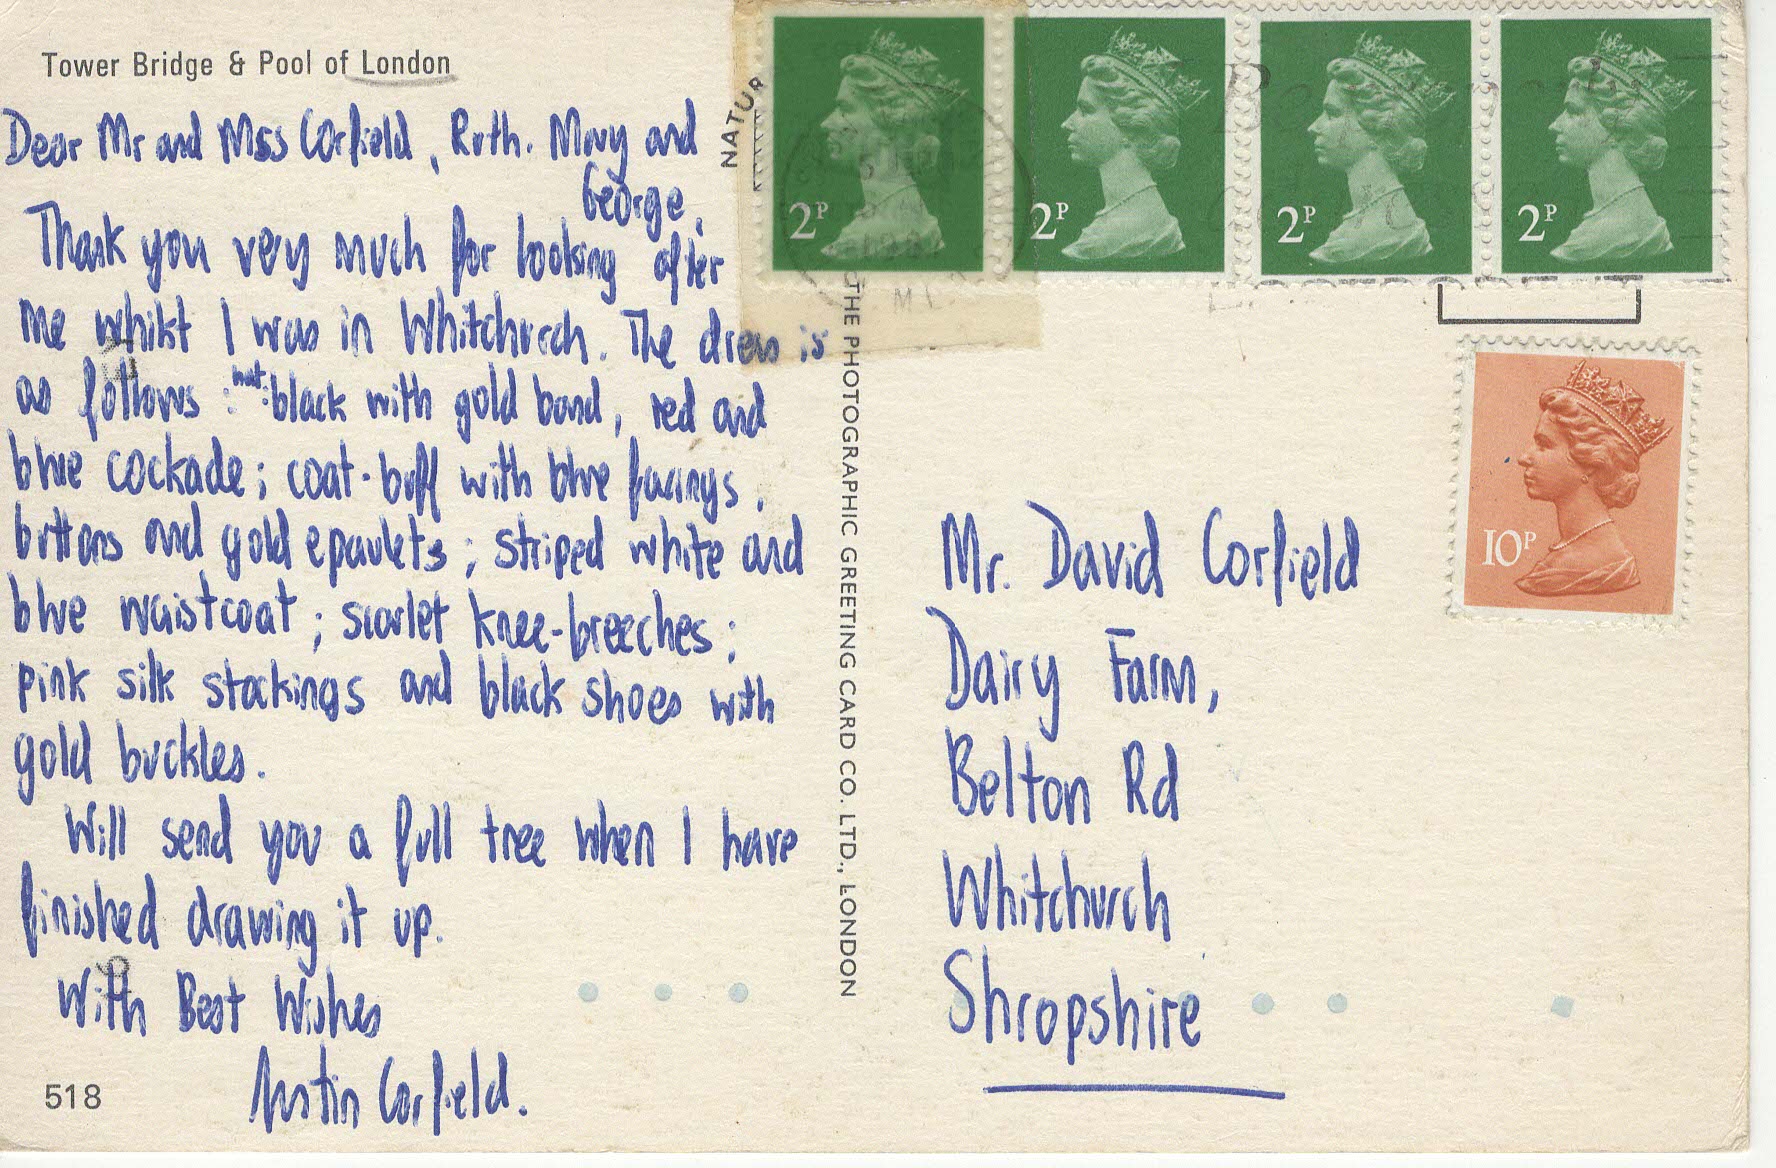 Tower Bridge & Pool of London
Dear Mr and Mss Corfield, Ruth. Mary and
George.
Thank you very much for looking after
me whilst I was in Whitchurch. The dress is
as follows : hat: black with gold band, red and
blue cockade; coat-buff with blue facings,
buttons and gold epaulets; striped white and
blue waistcoat; scarlet knee-breeches;
pink silk stockings and black shoes with
gold buckles.
Will send you a full tree when I have
finished drawing it up.
With Best Wishes
Justin Corfield.
518
NATUR
THE PHOTOGRAPHIC GREETING CARD CO. LTD., LONDON
2P
2P
2P
2P
10P
Mr. David Corfield
Dairy Farm,
Belton Rd
Whitchurch
Shropshire